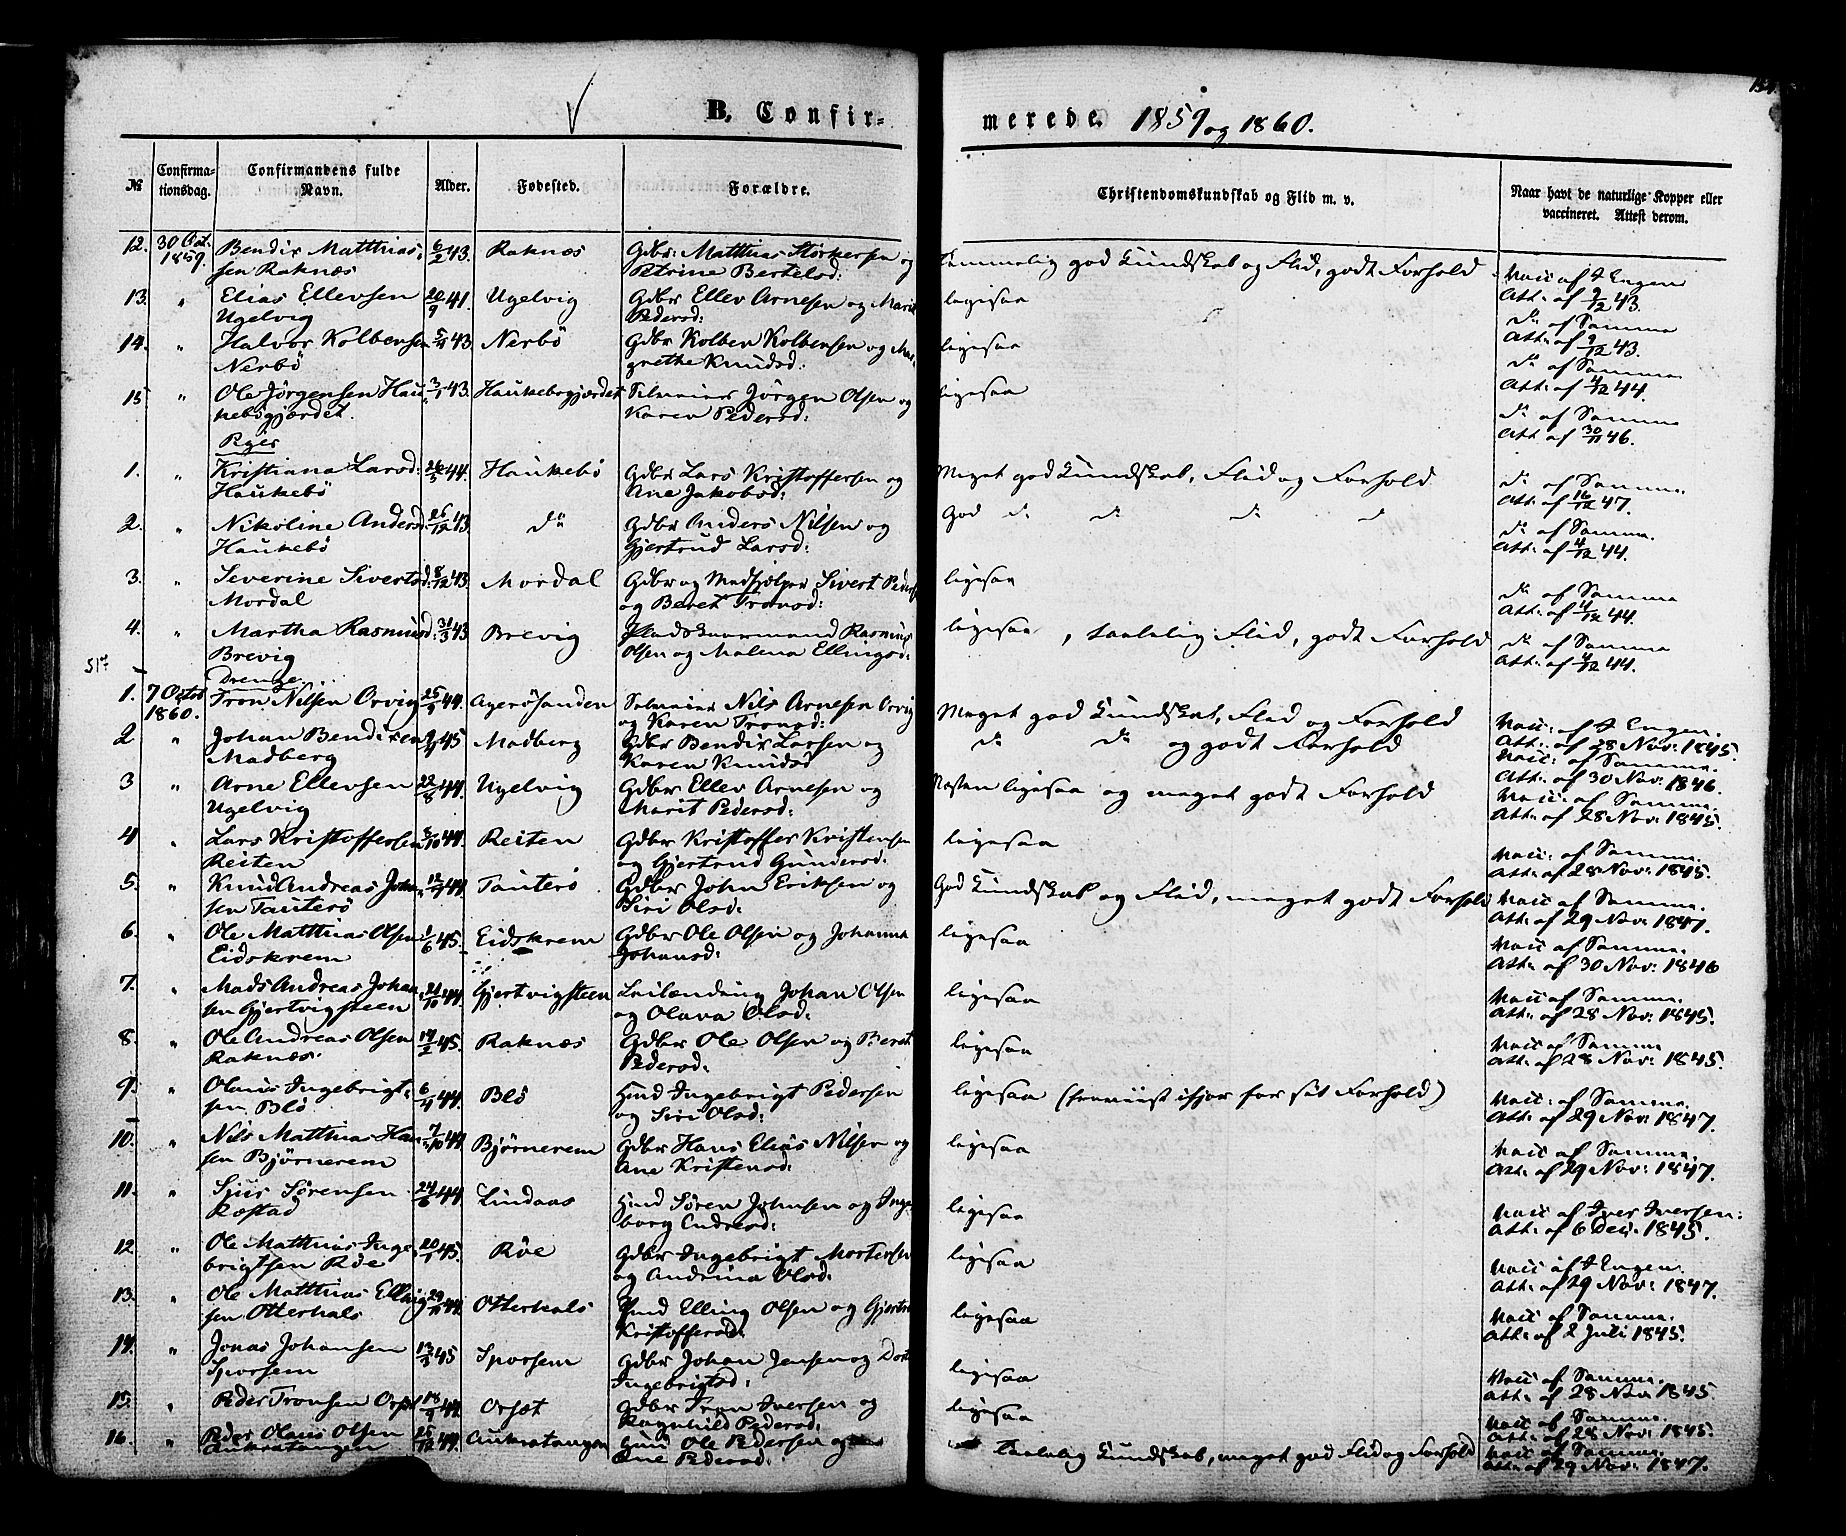 B. Confir-
merede. 1859 og 1860.
№
Confirma-
tionsdag.
Confirmandens fulde
Navn.
Alder.
Fødested.
Forældre.
Christendomskundskab og Flid m. v.
Naar havt de naturlige Kopper eller
vaccineret. Attest derom.
12. 30 Oct. 1859. Bendix Matthias- 6/2 43. Raknæs Gdbr: Matthias Størkersen og Temmelig god Kundskab og Flid, godt Forhold Vacc af J Engen
sen Raknæs Petrine Bertelsd: Att: af 9/12 43.
13. " Elias Ellevsen 20/9 41. Ugelvig Gdbr Ellev Arnesen og Marit ligesaa do af Samme
Ugelvig Pedersd: Att: af 9/12 43.
14. " Halvor Kolbensen 43 Nerbö Gdbr Kolben Kolbensen og Mar- ligesaa do af Samme
Nerbö grethe Knudsd: Att: af 4/12 44.
15 " Ole Jörgensen Hau- 3/1 43. Haukebøgjærdet Jörgen Olsen og ligesaa do af Samme
kebögjærdet. Karen Pedersd: Att af 30/11 46.
Piger
1. " Kristiana Larsd: 44. Haukebö Gdbr Lars Kristoffersen og Meget god Kundskab, Flid og Forhold do af Samme
Haukebö Ane Jakobsd: Att: af 16/12 47.
2. " Nikoline Andersd: 26/12 43. do Gdbr Anders Nilsen og God do do do do do af Samme.
Haukebö Gjertrud Larsd: Att: af 4/12 44.
3. " Severine Sivertsd: 8/12 43. Mordal Gdbr og Medhjelper Sivert Peders ligesaa do af Samme
Mordal og Beret Tronsd: Att: af 4/12 44.
4. " Martha Rasmusd: 31/3 43 Brevig Pladshusmand Rasmus ligesaa, taalelig Flid, godt Forhold do af Samme
Brevig Olsen og Malena Ellingsd: Att: af 4/12 44.
517
Drenge
1. 7 Octob 1860. Tron Nilsen Orvig 44. Agerösanden Nils Arnesen Orvig Meget god Kundskab, Flid og Forhold Vacc: af J Engen.
og Karen Tronsd: Att: af 28 Nov: 1845.
2 " Johan Bendixen 45 Madberg Gdbr Bendix Larsen og do do og godt Forhold Vacc: af Samme.
Madberg Karen Knudsd Att: af 30 Nov: 1846.
3 " Arne Ellevsen 22/8 44. Ugelvig Gdbr Ellev Arnesen og Næsten ligesaa og meget godt Forhold Vacc: af Samme.
Ugelvig Marit Pedersd: Att: af 28 Nov: 1845.
4 " Lars Kristoffersen 44. Reiten Gdbr Kristoffer Kristensen ligesaa Vacc: af Samme.
Reiten og Gjertrud Gundersd: Att: af 28 Nov: 1845.
5. " Knud Andreas John- 44. Tauterö Gdbr John Eriksen og God Kundskab og Flid, meget godt Forhold Vacc af Samme.
sen Tauterö Siri Olsd: Att: af 29 Nov: 1847.
6. " Ole Matthias Olsen 1/6 45. Eidskrem Gdbr Ole Olsen og Johanna ligesaa Vacc af Samme.
Eidskrem Johansd: Att: af 30 Nov: 1846
7. " Mads Andreas Johan- 21/10 44. Gjertvigsteen Leilænding Johan Olsen ligesaa Vacc af Samme.
sen Gjertvigsteen og Olava Olsd: Att: af 28 Nov: 1845.
8. " Ole Andreas Olsen 14/2 45. Raknæs Gdbr Ole Olsen og Beret ligesaa Vacc af Samme
Raknæs. Pedersd: Att: af 28 Nov: 1845.
9. " Olaus Ingebrigt- 6/4 44. Blö Hmd Ingebrigt Pedersen ligesaa (fraviist ifjor for sit Forhold) Vacc: af Samme.
sen Blö og Siri Olsd: Att: af 29 Nov: 1847.
10. " Nils Matthias Han- 7/10 44 Björnerem Gdbr Hans Elias Nilsen og ligesaa Vacc af Samme.
sen Björnerem Ane Kristensd: Att: af 29 Nov: 1847.
11. " Sjur Sörensen 44. Lindaas Hmd Sören Johnsen og Inge- ligesaa Vacc af Iver Iversen:
Røstad borg Endresd: Att: af 6 Dec: 1845.
12 " Ole Matthias Inge- 20/1 45. Röe Gdbr Ingebrigt Mortensen ligesaa Vacc af J Engen.
brigtsen Röe og Andrina Olsd: Att: af 29 Nov: 1847.
13. " Ole Matthias Elling- 44. Otterhals Hmd Elling Olsen og Gjertru ligesaa Vacc af Samme.
sen Otterhals Kristoffersd: Att: af 2 Juli 1845.
14. " Jonas Johansen 13/3 45 Sporsem Gdbr Johan Jensen og Dort ligesaa Vacc af Samme.
Sporsem Ingebrigtsd: Att: af 28 Nov 1845
15. " Peder Tronsen Orset 18/9 44. Orset Gdbr Tron Iversen og ligesaa Vacc af Samme.
Ragnhild Pedersd: Att: af 28 Nov: 1845.
16. " Peder Olaus Olsen 44. Aukratangen Hmd Ole Pedersen og Taalelig Kundskab, meget god Flid og Forhold Vacc af Samme.
Aukratangen Ane Pedersd: Att: af 29 Nov: 1847.